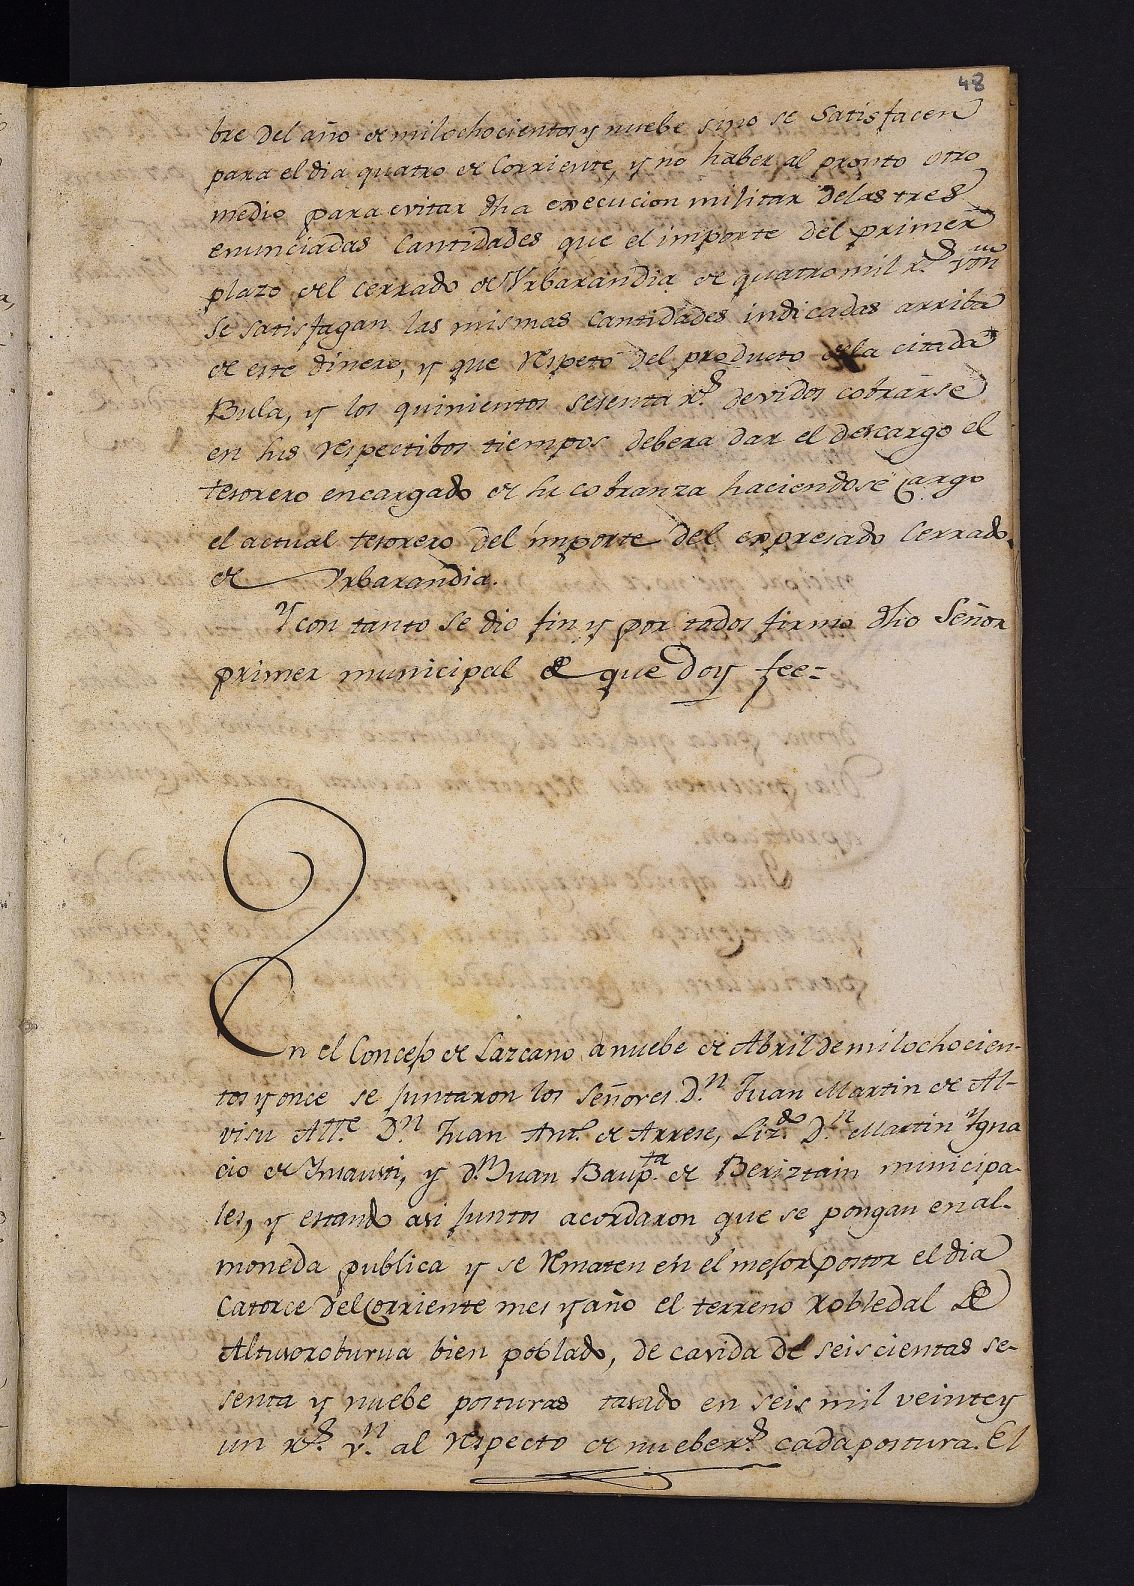 48
bre del año de milochocientos y nuebe sino se satisfacen
para el dia quatro de Corriente, y no haber al pronto otro
medio para evitar dha execucion militar delas tres
enunciadas Cantidades que el importe del primer
plazo del cerrado de Vrbarandia de quatromil r.s von
se satisfagan las mismas cantidades indicadas arriba
de este dinero, y que respeto del producto dela citada
Bula, y los quinientos sesenta r.s devidos cobrarse
en sus respectibos tiempos debera dar el descargo el
tesorero encargado de su cobranza haciendose Cargo
el actual tesorero del importe del expresado Cerrado
de Vrbarandia.
Y con tanto se dio fin y por todos firmo dho Señor
primer municipal de que Doy fee=
En el Concejo de Lazcano à nuebe de Abril de milochocien-
tos y once se juntaron los Señores D.n Juan Martin de Al-
visu Alle. D.n Juan Ant.o de Arrese, Liz.do D.n Martin Ygna
cio de Ynausti, y D.n Juan Baup.ta de Beriztain municipa-
les, y estando asi juntos acordaron que se pongan en al-
moneda publica y se rematen en el mejor postor el dia
Catorce del Corriente mes y año el terreno Robledal de
Altusoroburua bien poblado, de cavida de seiscientas se-
senta y nuebe posturas tasado en seis mil veinte y
un r.s v.n al respecto de nuebe r.s cada postura. El